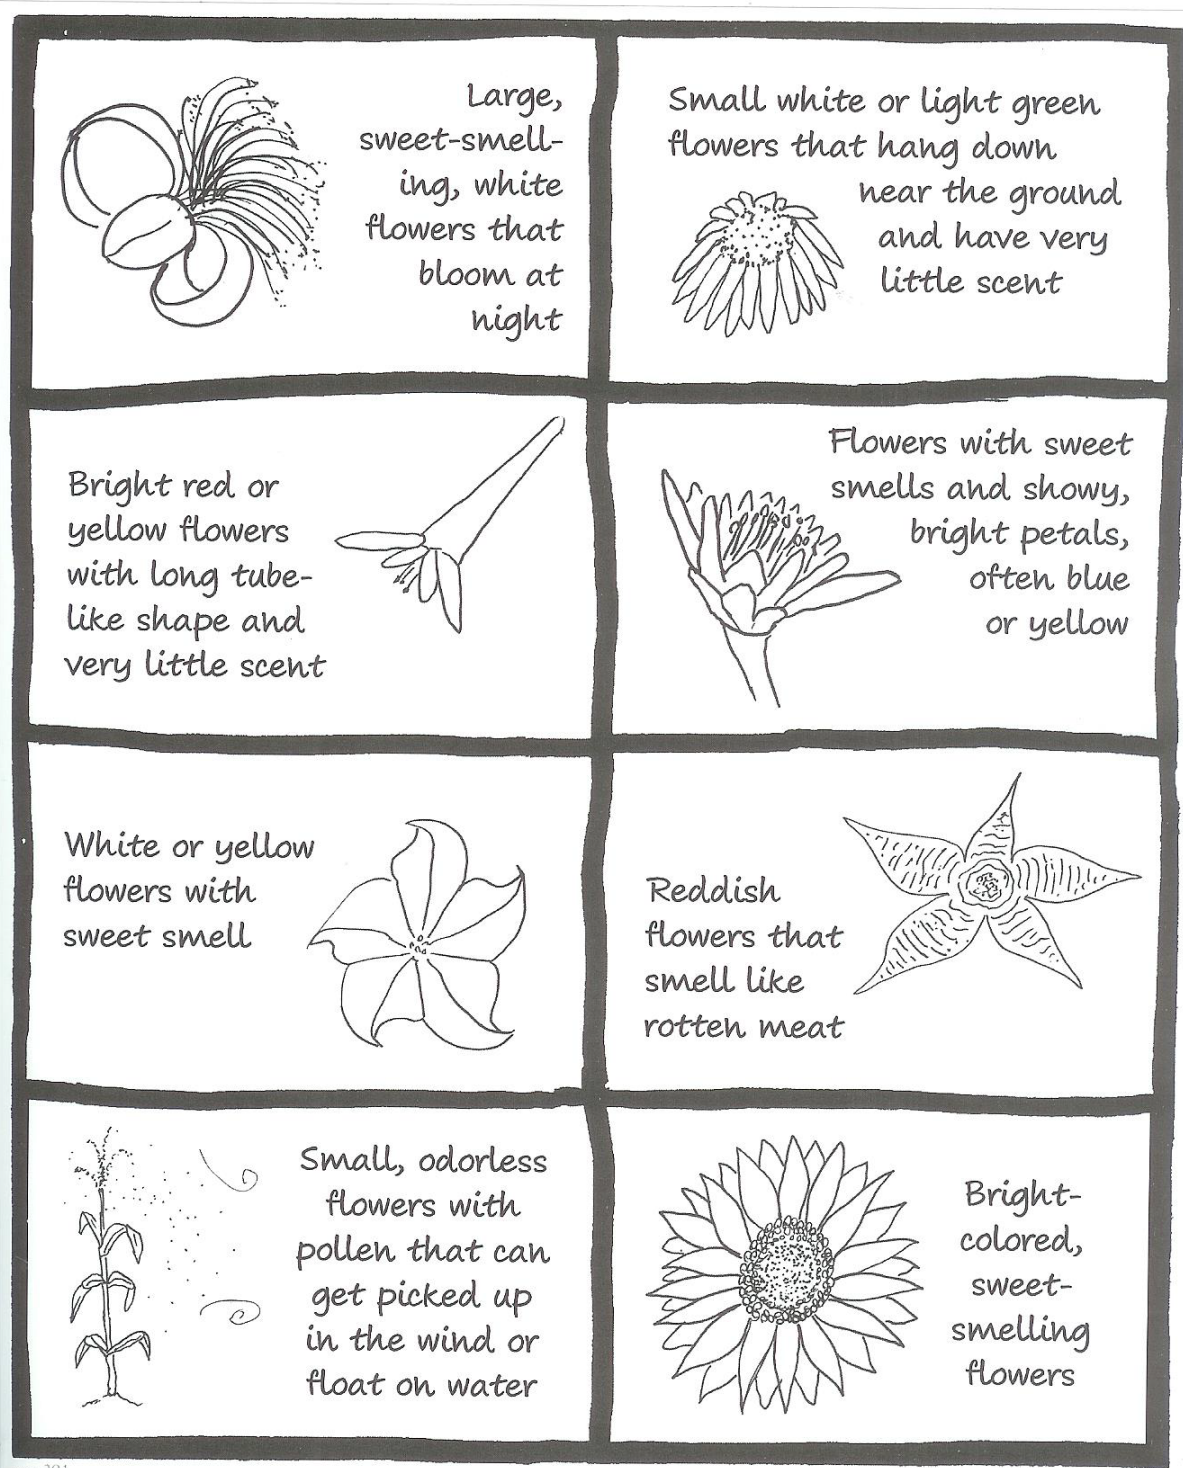 Large,
sweet-smell-
ing, white
flowers that
bloom at
night
Small white or light green
flowers that hang down
near the ground
and have very
little scent
Bright red or
yellow flowers
with long tube-
like shape and
very little scent
Flowers with sweet
smells and showy,
bright petals,
often blue
or yellow
White or yellow
flowers with
sweet smell
Reddish
flowers that
smell like
rotten meat
Small, odorless
flowers with
pollen that can
get picked up
in the wind or
float on water
Bright-
colored,
sweet-
smelling
flowers